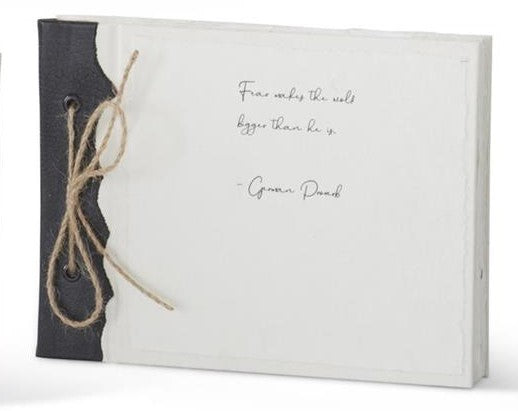 Fear makes the wolf
bigger than he is.
- German Proverb